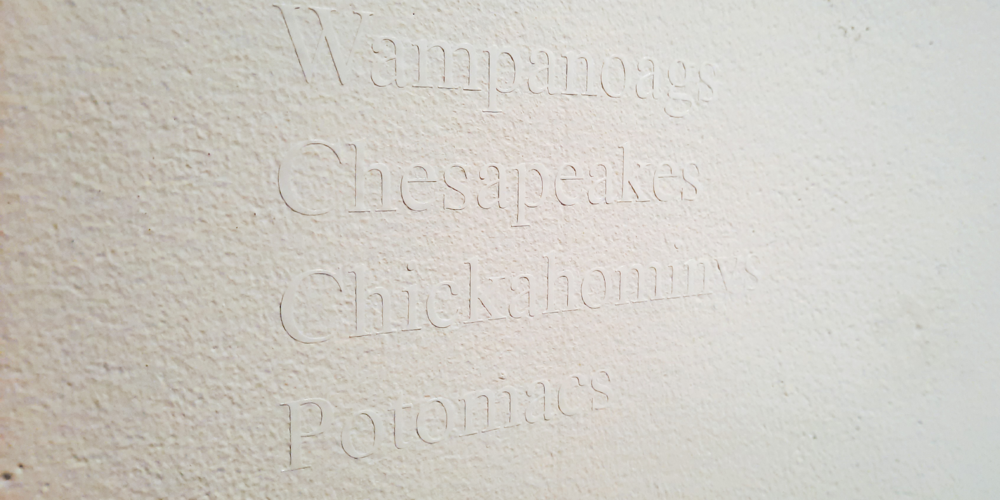 Wampanoags
Chesapeakes
Chickahominys
Potomacs